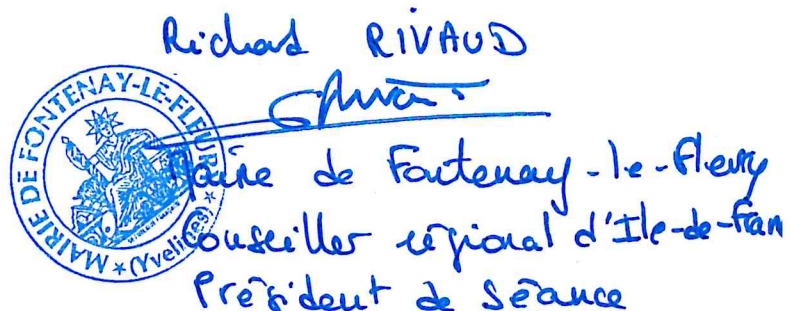 Richard RIVAUD
MAIRIE DE FONTENAY-LE-FLEURY
* (Yvelines) *
Maire de Fontenay-le-Fleury
Conseiller régional d'Ile-de-Fran
Président de Séance